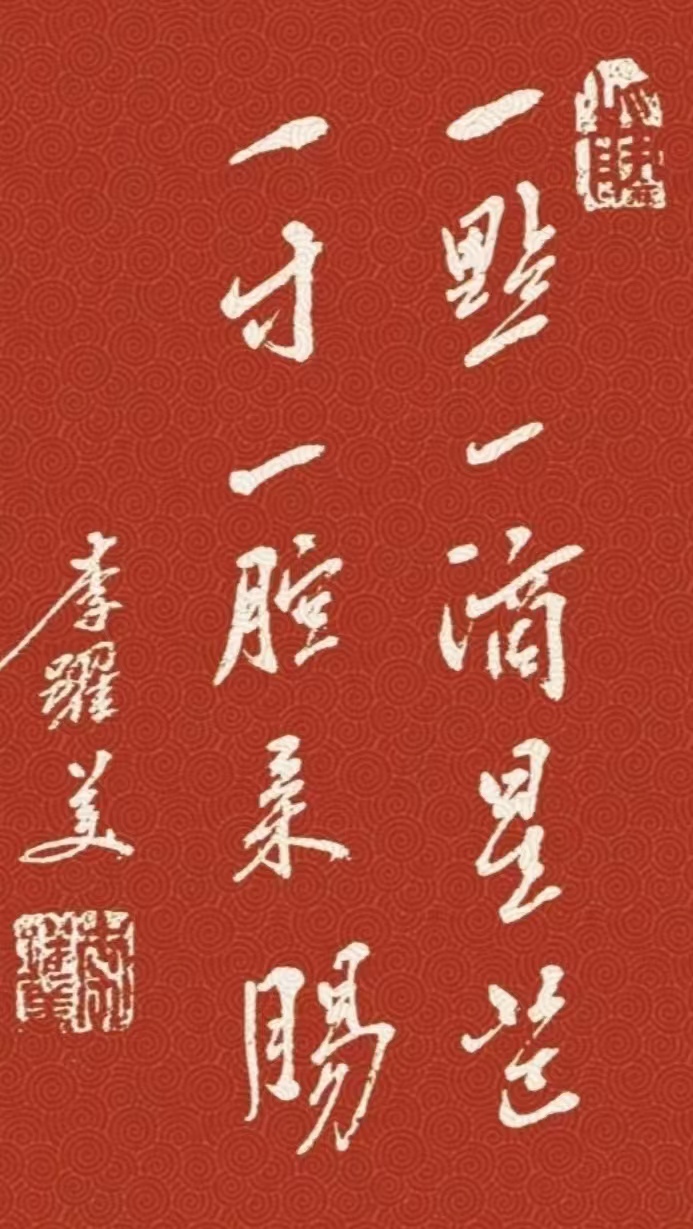 一點一滴星芒
一寸一腔柔腸
李耀美